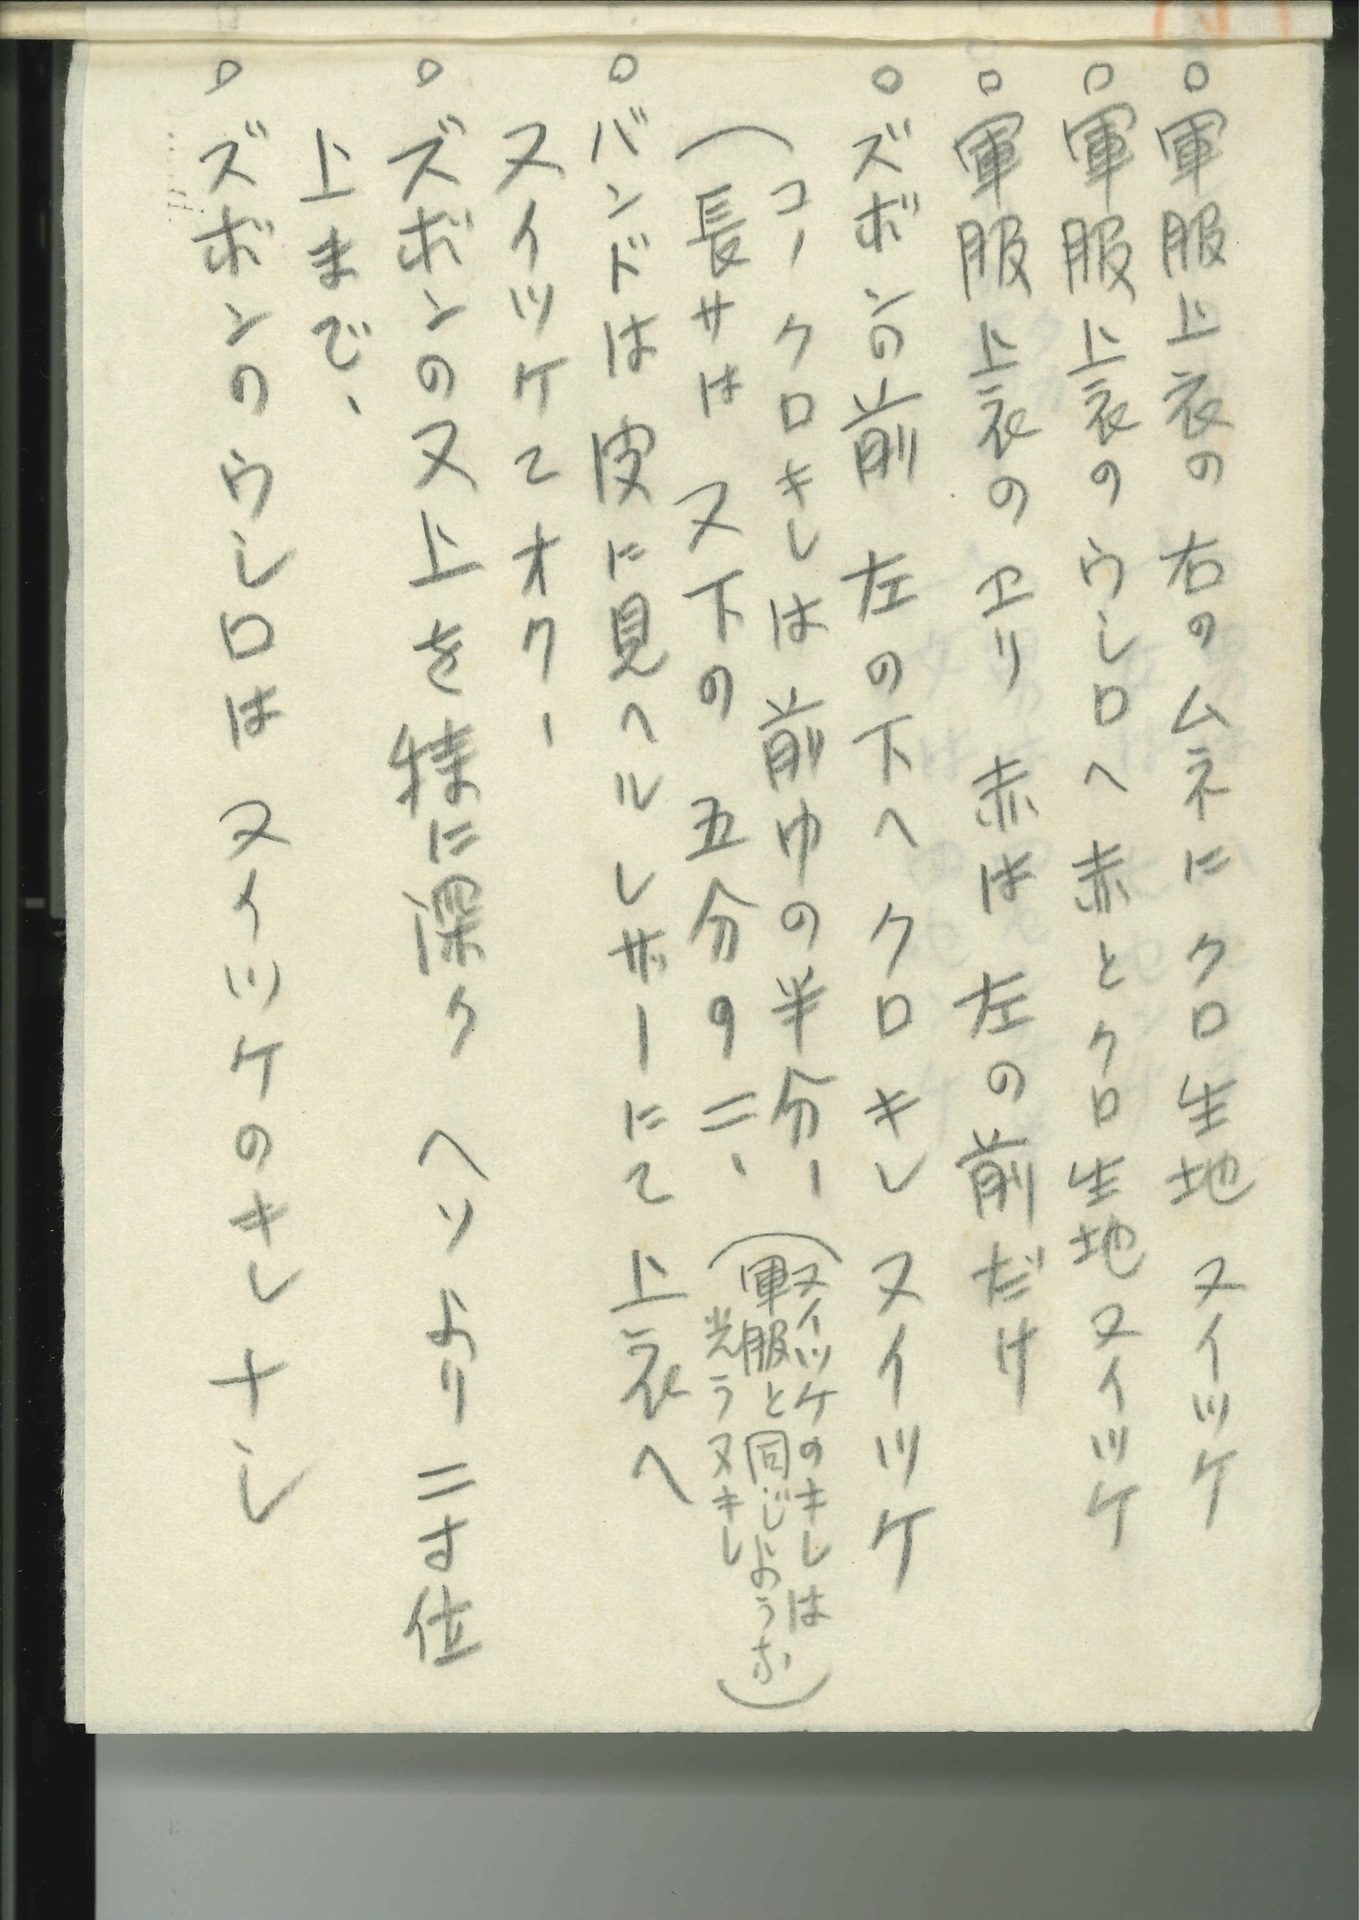 ○軍服上衣の右のムネにクロ生地ヌイツケ
○軍服上衣のウシロへ赤とクロ生地ヌイツケ
○軍服上衣のエリ 赤は 左の前だけ
○ズボンの前 左の下へ クロキレ ヌイツケ
(コノクロキレは前巾の半分、
長サは 又下の 五分ノ二、
(ヌイツケのキレは
軍服と同じような
光ラヌキレ)
○バンドは皮に見ヘルレザーにて上衣へ
ヌイツケてオク、
○ズボンの又上を特に深ク ヘソより二寸位
上まで、
○ズボンのウシロは ヌイツケのキレナシ